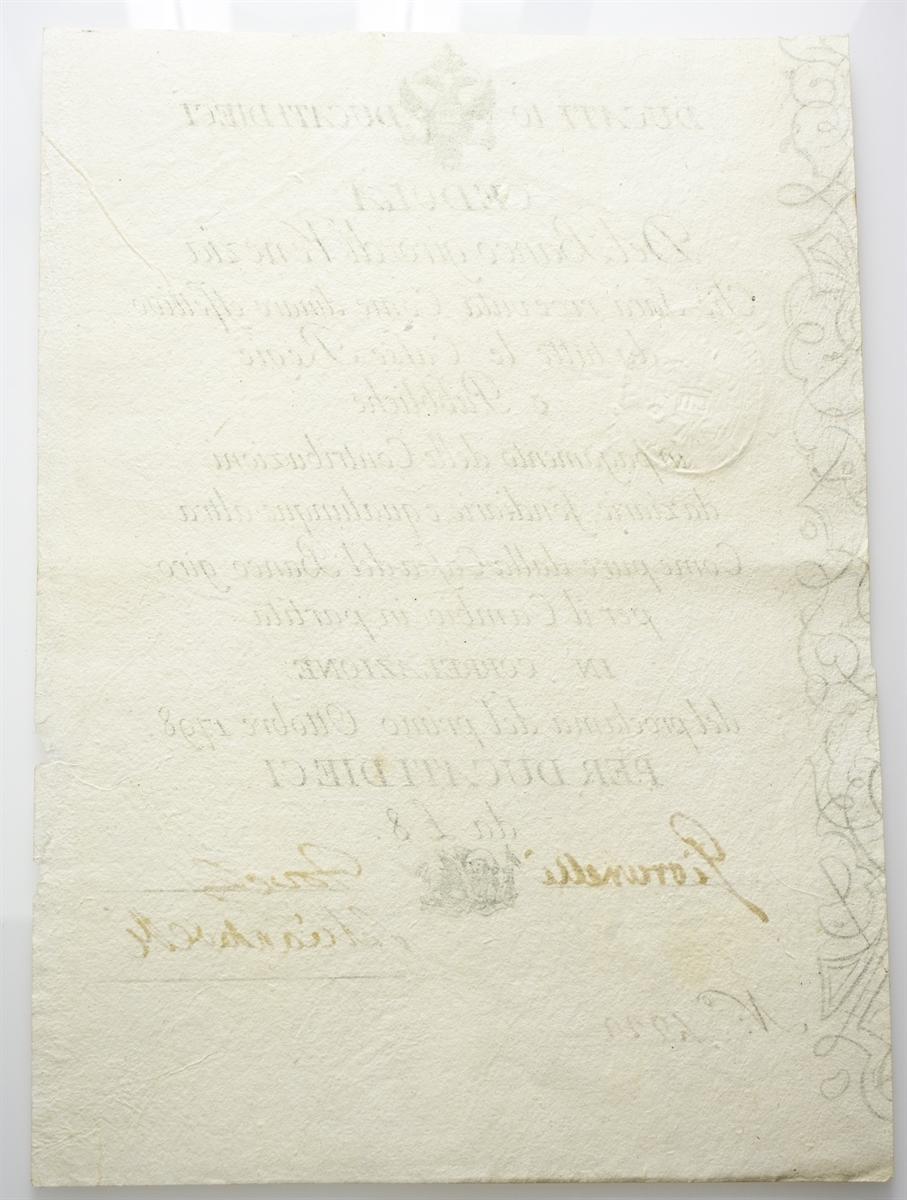 DUCATI 10 DUCATI DIECI
CEDULA
Del Banco giro di Venezia
Che sarà ricevuta come dinaro effettivo
da tutte le Casse Regie
o Pubbliche
in pagamento delle Contribuzioni
daziarie, fondiarie e qualunque altra
Come pure dalla Cassa del Banco giro
per il Cambio in partita
IN CORRELAZIONE
del proclama del primo Ottobre 1798.
PER DUCATI DIECI
da L 8.
N.o